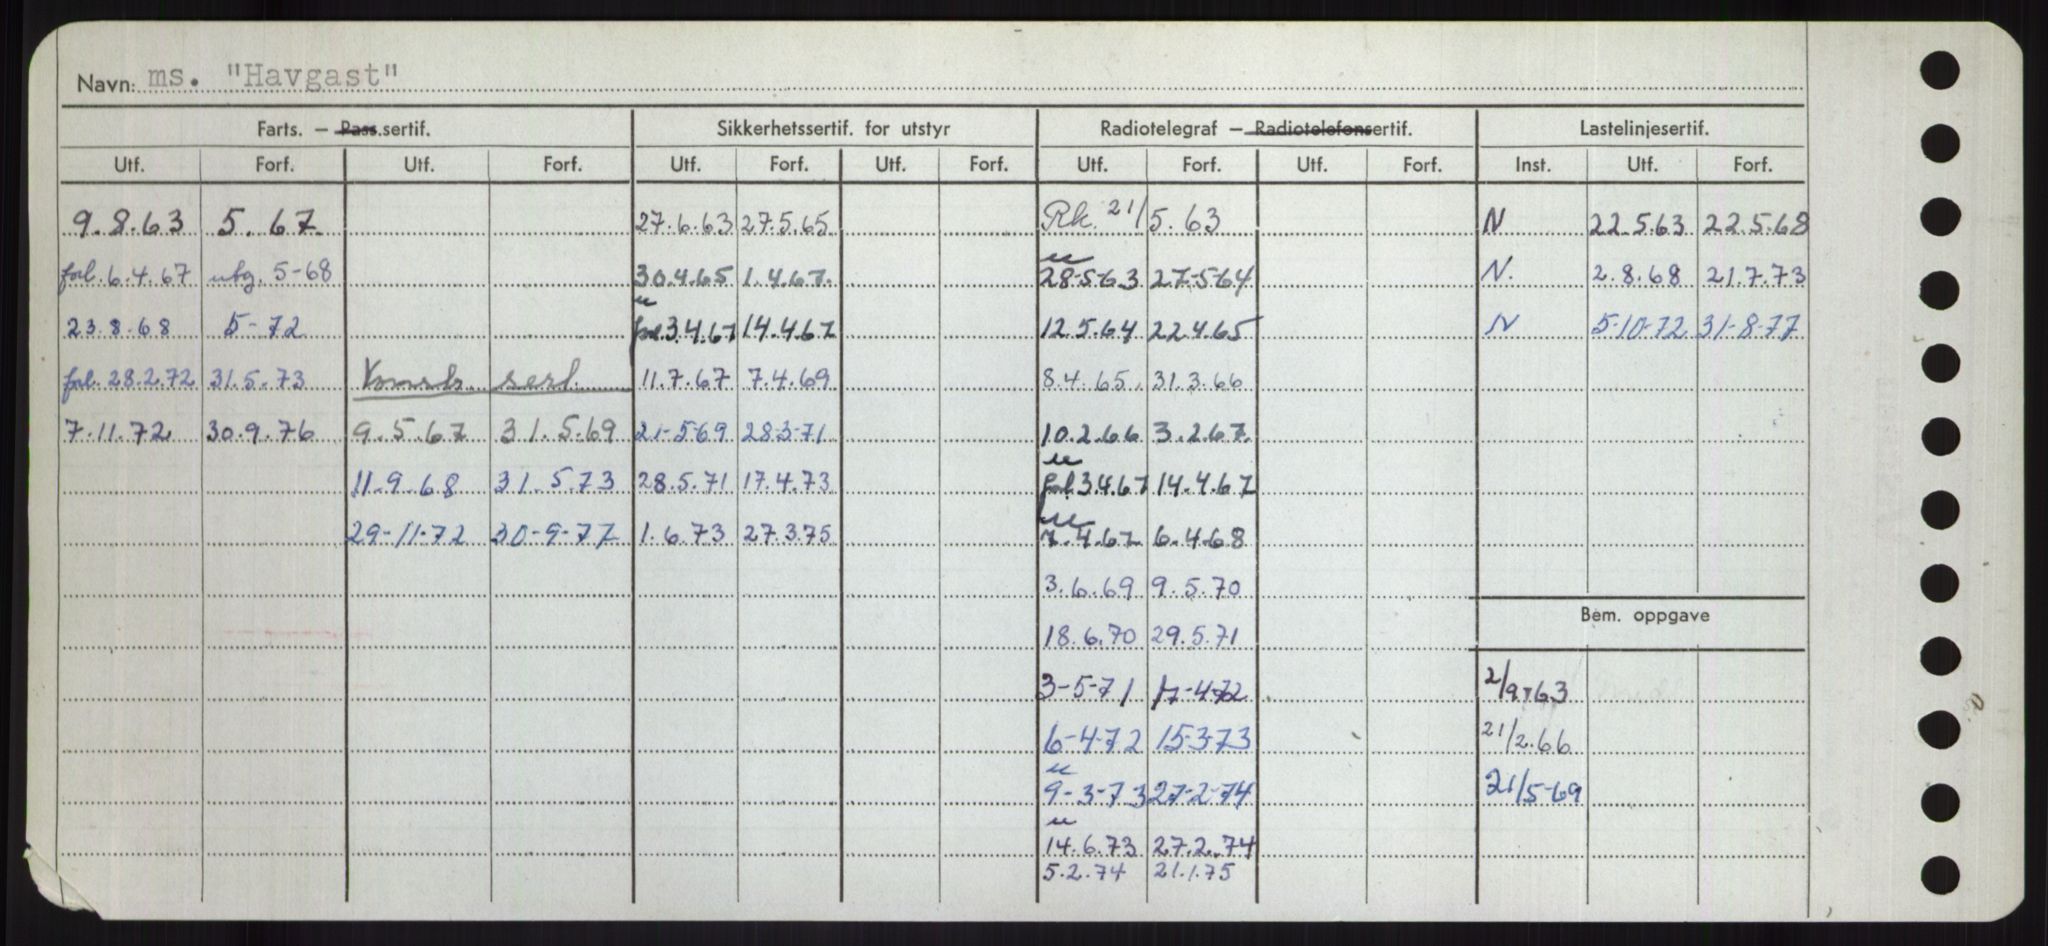 Navn: ms. "Havgast"
Farts. – Pass.sertif. Sikkerhetssertif. for utstyr Radiotelegraf – Radiotelefonsertif. Lastelinjesertif.
Utf. Forf. Utf. Forf. Utf. Forf. Utf. Forf. Utf. Forf. Utf. Forf. Inst. Utf. Forf.
9.8.63 5.67. 27.6.63 27.5.65 Rk. 21/5.63 N 22.5.63 22.5.68
forl. 6.4.67 utg. 5-68 30.4.65 1.4.67. u 28-5-63 27-5-64 N. 2.8.68 21.7.73
23.8.68 5-72 u forl 3.4.67 14.4.67 12.5.64 22.4.65 N 5-10-72 31-8-77
forl. 28.2.72 31.5.73 Konstr. sert. 11.7.67 7.4.69 8.4.65. 31.3.66
7.11.72 30.9.76 9.5.67 31.5.69 21-5-69 28-3-71 10.2.66 3.2.67.
11.9.68 31.5.73 28.5.71 17.4.73 u forl 3.4.67 14.4.67
29-11-72 30-9-77 1.6.73 27.3.75 u 7.4.67 6.4.68
3.6.69 9.5.70
Bem. oppgave
18.6.70 29.5.71
3-5-71 17-4-72 2/9.63
6-4-72 15-3-73 21/2.66
u 9-3-73 27-2-74 21/5-69
u 14.6.73 27.2.74
5.2.74 21.1.75